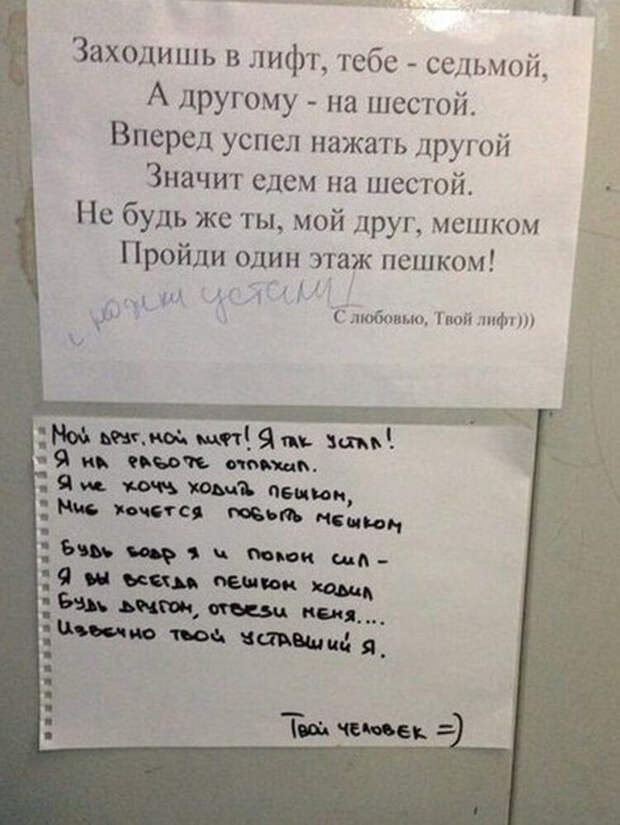 Заходишь в лифт, тебе - седьмой,
А другому - на шестой.
Вперед успел нажать другой
Значит едем на шестой.
Не будь же ты, мой друг, мешком
Пройди один этаж пешком!
ножки устали!
С любовью, Твой лифт)))
Мой друг, мой лифт! Я так устал!
Я на работе отпахал.
Я не хочу ходить пешком,
Мне хочется побыть мешком
Будь бодр я и полон сил -
Я бы всегда пешком ходил
Будь другом, отвези меня....
Извечно твой уставший Я.
Твой человек =)